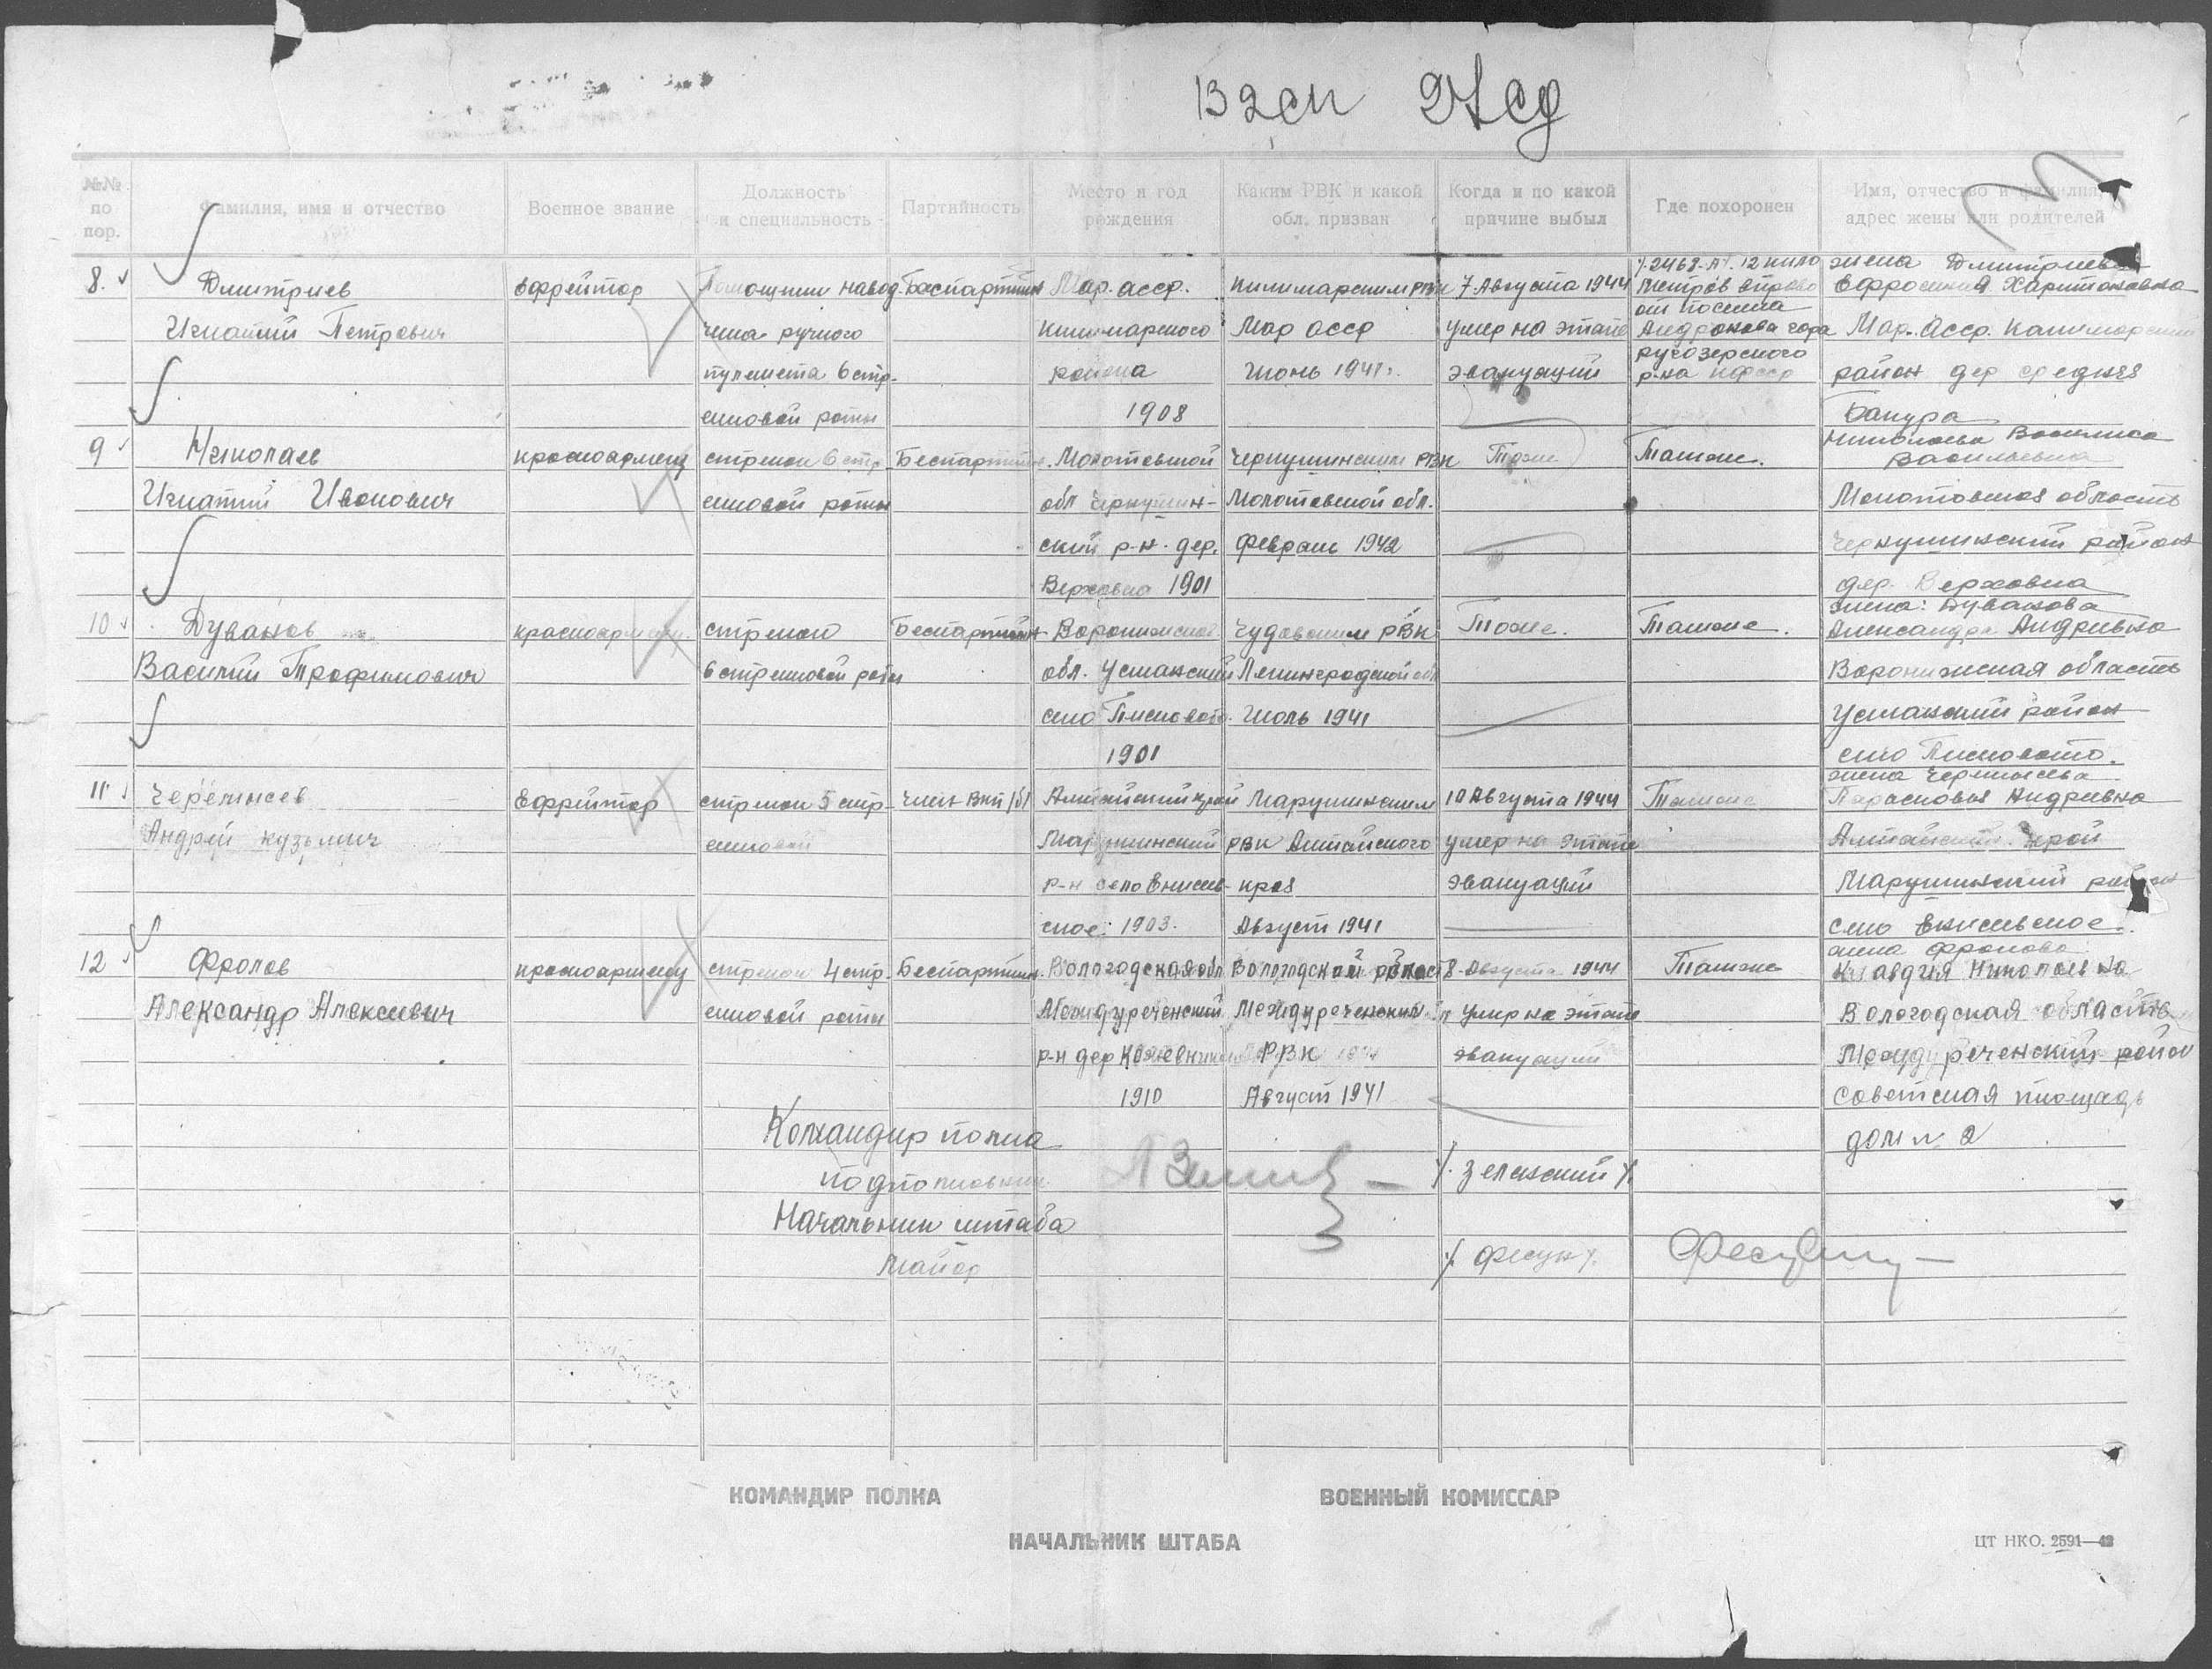 132 сп 27 сд
№№ по пор.
Фамилия, имя и отчество
Военное звание
Должность и специальность
Партийность
Место и год рождения
Каким РВК и какой обл. призван
Когда и по какой причине выбыл
Где похоронен
Имя, отчество и фамилия, адрес жены или родителей
8.
Дмитриев
Игнатий Петрович
ефрейтор
Помощник навод-
чика ручного
пулемета 6 стр-
елковой роты
Беспартийн
Мар. асср.
килимарского
района
1908
килимарским РВК
Мар асср
Июнь 1941г.
7 Августа 1944
умер на этапе
эвакуаций
12 кило
метров вправо
от поселка
Андронова гора
ругозерского
р-на кфсср
жена Дмитриева
Ефросиния Харитоновна
Мар. Асср. Килимарский
район дер средняя
9
Николаев
Игнатий Иванович
красноармеец
стрелок 6 стр-
елковой роты
Беспартийн.
Молотовской
обл Чернушин-
ский р-н. дер.
1901
Чернушинским РВК
Молотовской обл.
февраль 1942
Тоже
Также.
Николаева Василиса
Васильевна
Молотовская область
Чернушинский район
дер.
10
Дуванов
Василий Трофимович
красноармеец.
стрелок
6 стрелковой роты
Беспартийн
Воронежской
обл. Усманский
село
1901
Чудовским РВК
Ленинградской обл
Июль 1941
Тоже.
Также.
жена: Дуванова
Александра Андреевна
Воронежская область
Усманский район
село
11
Андрей кузьмич
Ефрейтор
стрелок 5 стр-
елковой
член ВКП/б/
Алтайский край
Марушинский
р-н село Енисей-
ское. 1903.
Марушинским
РВК Алтайского
края
Август 1941
10 Августа 1944
умер на этапе
эвакуаций
Также
жена
Парасковья Андреевна
Алтайский край
Марушинский район
село Енисейское.
12
Фролов
Александр Алексеевич
красноармеец
стрелок 4 стр-
елковой роты
Беспартийн.
Вологодская обл
Междуреченский
р-н дер
1910
Вологодской област
Междуреченский
РВК
Август 1941
8 Августа 1944
умер на этапе
эвакуаций
Также
жена Фролова
Клавдия Николаевна
Вологодская область
Междуреченский район
советская площадь
дом № 2
Командир полка
подполковник
/. Зеленский /.
Начальник штаба
майор
/. Фесун /.
КОМАНДИР ПОЛКА
ВОЕННЫЙ КОМИССАР
НАЧАЛЬНИК ШТАБА
ЦТ НКО. 2591—42